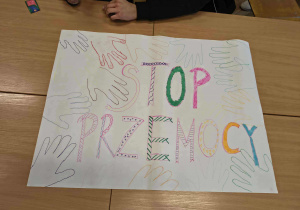 STOP
PRZEMOCY